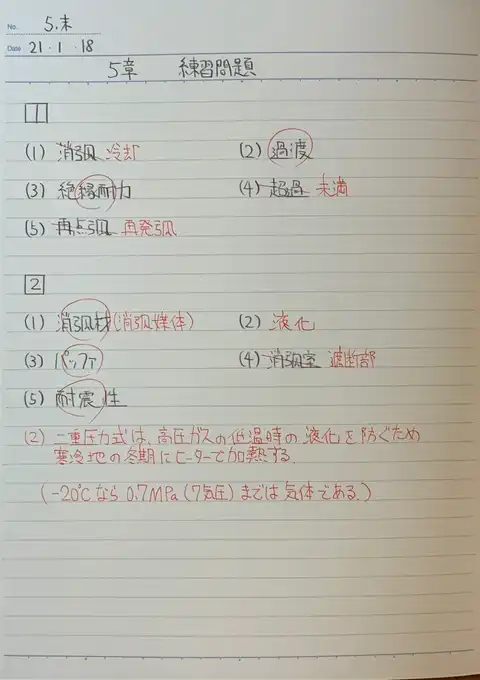 No. 5.末
Date 21・1・18
5章 練習問題
1
(1) 消弧 冷却 (2) 過渡
(3) 絶縁耐力 (4) 超過 未満
(5) 再点弧 再発弧
2
(1) 消弧材(消弧媒体) (2) 液化
(3) パッファ (4) 消弧室 遮断部
(5) 耐震性
(2) 二重圧力式は、高圧ガスの低温時の液化を防ぐため
寒冷地の冬期にヒーターで加熱する。
(-20℃なら0.7MPa(7気圧)までは気体である。)